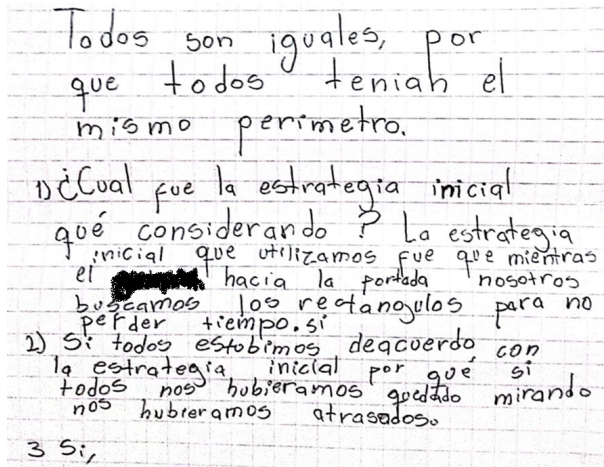 Todos son iguales, por
que todos tenian el
mismo perimetro.
1) ¿Cual fue la estrategia inicial
qué considerando? La estrategia
inicial que utilizamos fue que mientras
el hacia la portada nosotros
buscamos los rectangulos para no
perder tiempo. si
2) Si todos estubimos deacuerdo con
la estrategia inicial por qué si
todos nos hubieramos quedado mirando
nos hubieramos atrasados.
3 Si,